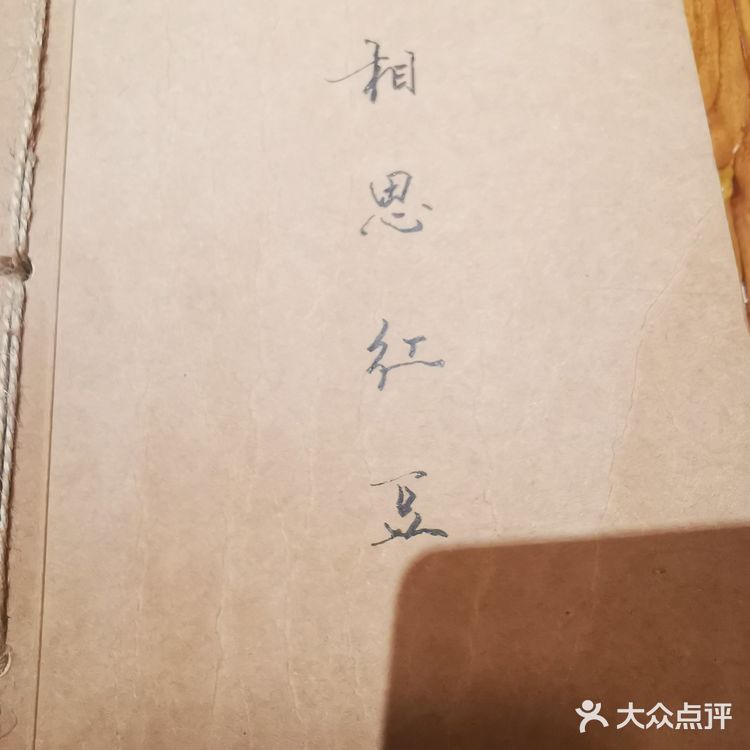 相思红豆
大众点评